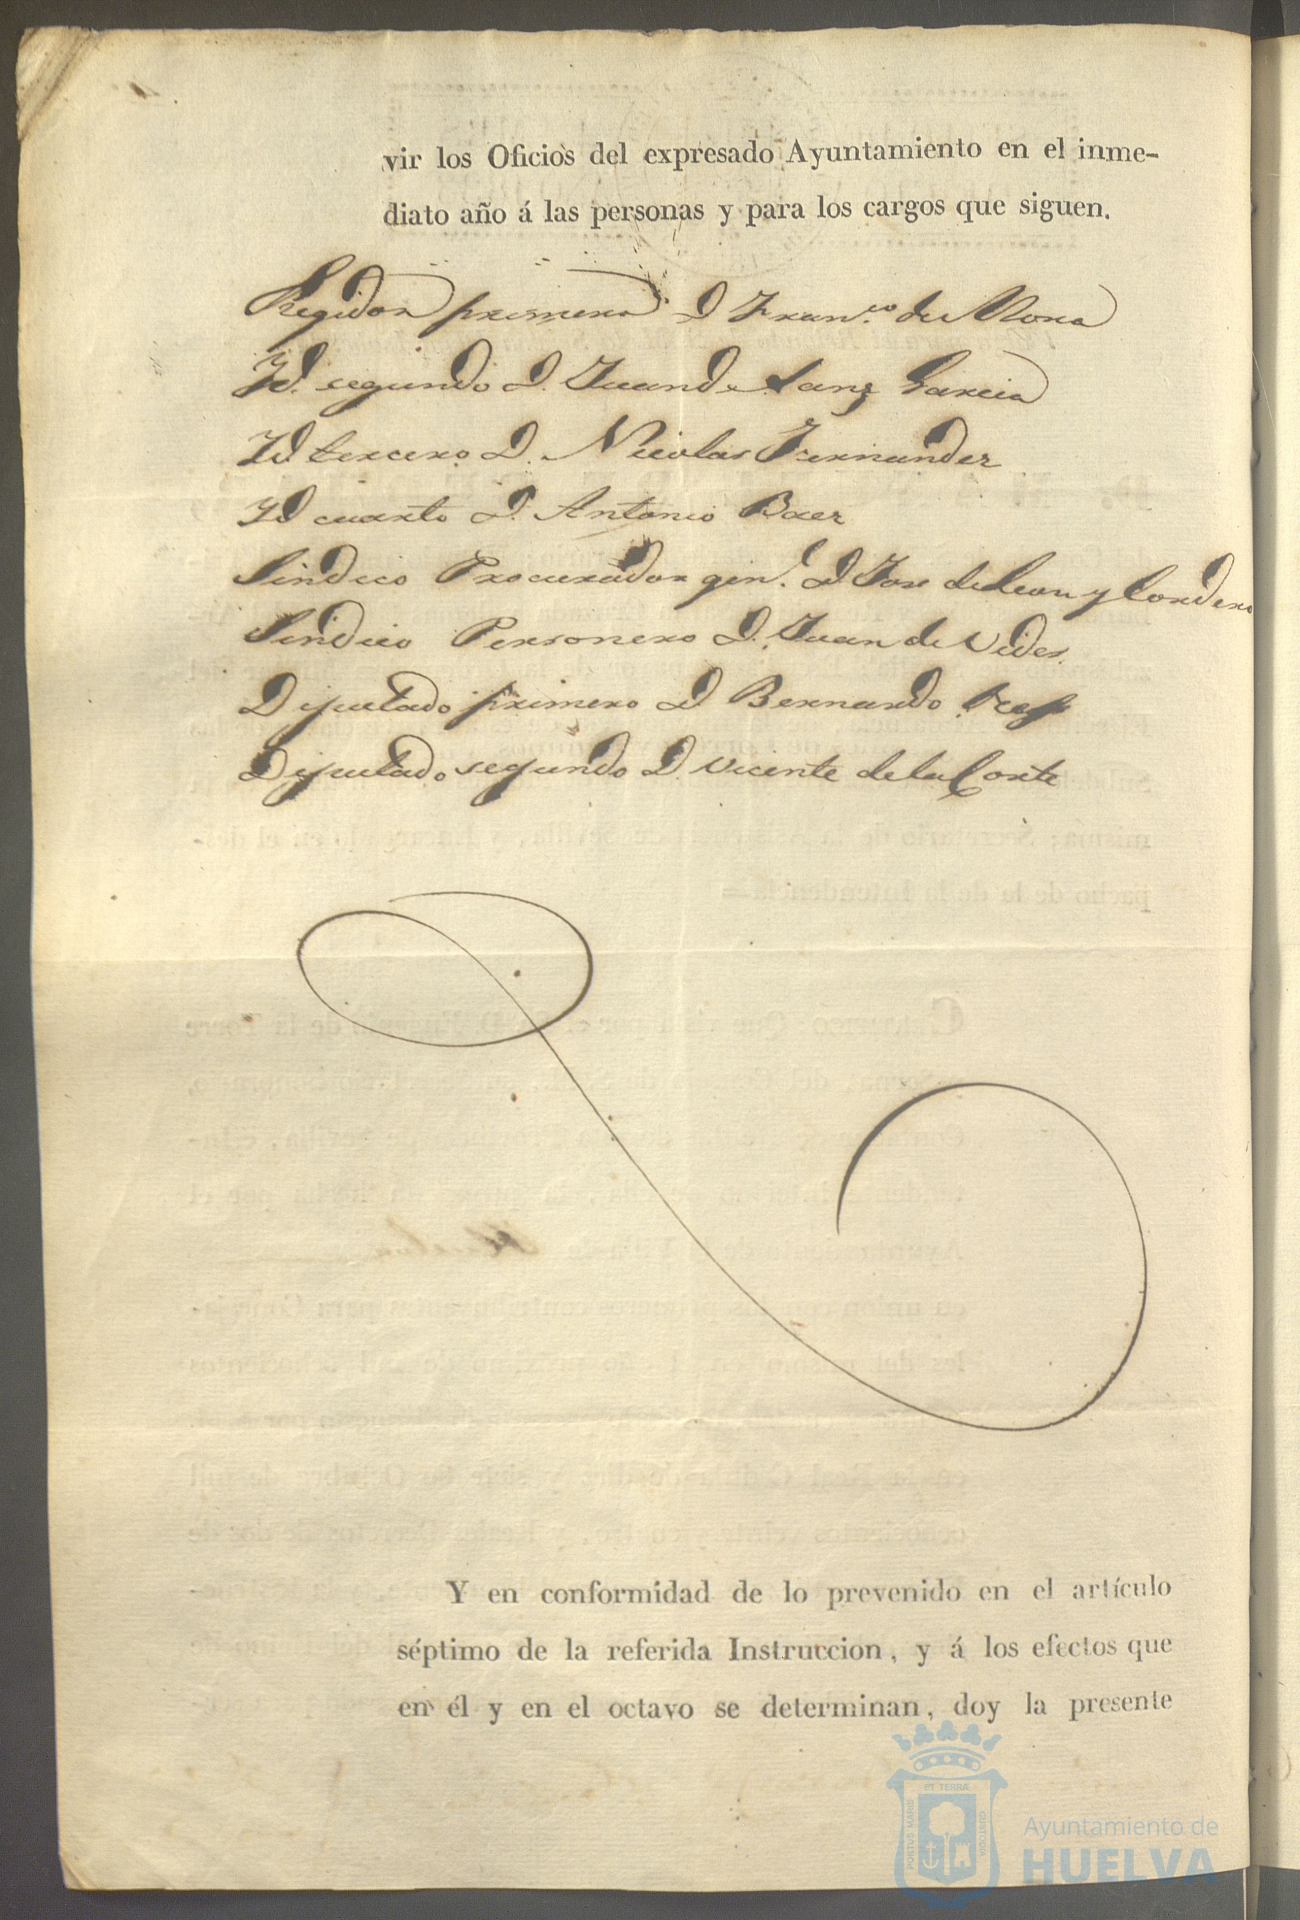 vir los Oficios del expresado Ayuntamiento en el inme-
diato año á las personas y para los cargos que siguen.
Regidor primero D Fran.co de Mora
Yd. segundo D. Juan de Sanz Garcia
Yd tercero D. Nicolas Fernandez
Yd cuarto D. Antonio Baez
Sindico Procurador gen.l D Jose de Leon y Cordero
Sindico Personero D. Juan de Vides
Diputado primero D Bernardo
Diputado segundo D. Vicente de la Corte
Y en conformidad de lo prevenido en el artículo
séptimo de la referida Instruccion, y á los efectos que
en él y en el octavo se determinan, doy la presente
PORTUS MARIS ET TERRÆ CUSTODIA
Ayuntamiento de
HUELVA